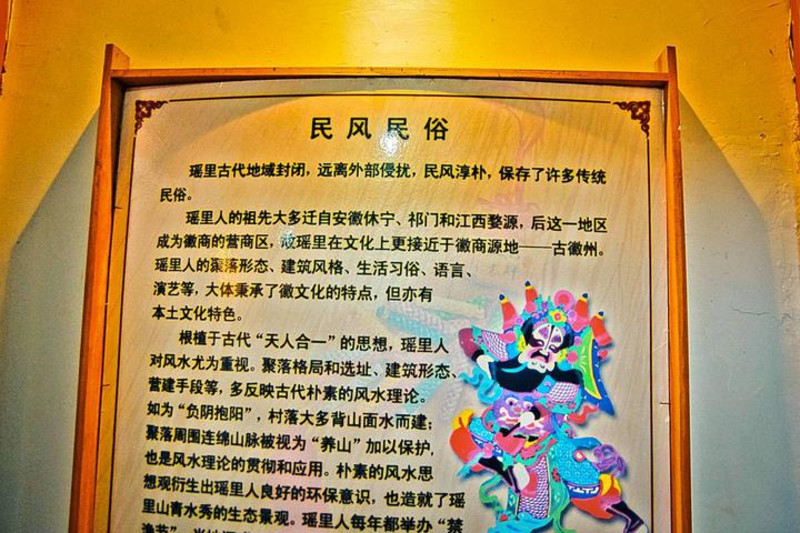 民风民俗
瑶里古代地域封闭，远离外部侵扰，民风淳朴，保存了许多传统
民俗。
瑶里人的祖先大多迁自安徽休宁、祁门和江西婺源，后这一地区
成为徽商的营商区，故瑶里在文化上更接近于徽商源地——古徽州。
瑶里人的聚落形态、建筑风格、生活习俗、语言、
演艺等，大体秉承了徽文化的特点，但亦有
本土文化特色。
根植于古代“天人合一”的思想，瑶里人
对风水尤为重视。聚落格局和选址、建筑形态、
营建手段等，多反映古代朴素的风水理论。
如为“负阴抱阳”，村落大多背山面水而建；
聚落周围连绵山脉被视为“养山”加以保护，
也是风水理论的贯彻和应用。朴素的风水思
想观衍生出瑶里人良好的环保意识，也造就了瑶
里山青水秀的生态景观。瑶里人每年都举办“禁
渔节”